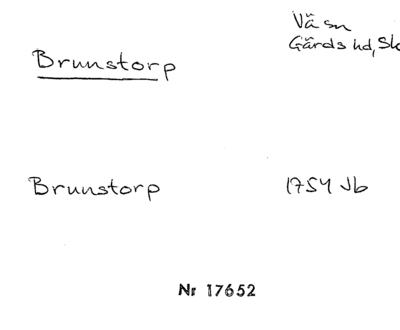 Vä sn
Gärds hd, Sk
Brunstorp
Brunstorp 1754 Jb
Nr 17652